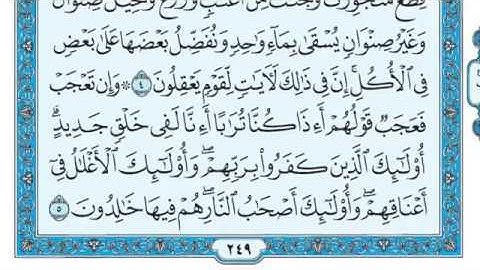 قِطَعٌ مُّتَجَٰوِرَٰتٌ وَجَنَّٰتٌ مِّنْ أَعْنَٰبٍ وَزَرْعٌ وَنَخِيلٌ صِنْوَانٌ
وَغَيْرُ صِنْوَانٍ يُسْقَىٰ بِمَاءٍ وَٰحِدٍ وَنُفَضِّلُ بَعْضَهَا عَلَىٰ بَعْضٍ
فِي ٱلْأُكُلِ ۚ إِنَّ فِي ذَٰلِكَ لَءَايَٰتٍ لِّقَوْمٍ يَعْقِلُونَ ٤ ۞ وَإِن تَعْجَبْ
فَعَجَبٌ قَوْلُهُمْ أَءِذَا كُنَّا تُرَٰبًا أَءِنَّا لَفِي خَلْقٍ جَدِيدٍ ۗ
أُو۟لَٰٓئِكَ ٱلَّذِينَ كَفَرُوا۟ بِرَبِّهِمْ ۖ وَأُو۟لَٰٓئِكَ ٱلْأَغْلَٰلُ فِيٓ
أَعْنَاقِهِمْ ۖ وَأُو۟لَٰٓئِكَ أَصْحَٰبُ ٱلنَّارِ ۖ هُمْ فِيهَا خَٰلِدُونَ ٥
٢٤٩